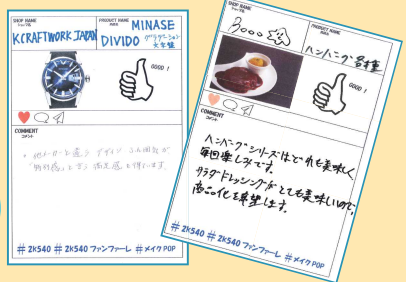 SHOP NAME
ショップ名
KCRAFTWORK JAPAN
PRODUCT NAME
商品名
MINASE
DIVIDO グラデーション
文字盤
GOOD !
COMMENT
コメント
# 2K540 # 2K540 ファンファーレ # メイクPOP
SHOP NAME
ショップ名
Booo
PRODUCT NAME
商品名
ハンバーグ各種
GOOD !
COMMENT
コメント
ハンバーグシリーズはどれも美味しく、
毎回楽しみです。
サラダドレッシングがとても美味しいので、
商品化を希望します。
# 2K540 # 2K540 ファンファーレ # メイクPOP